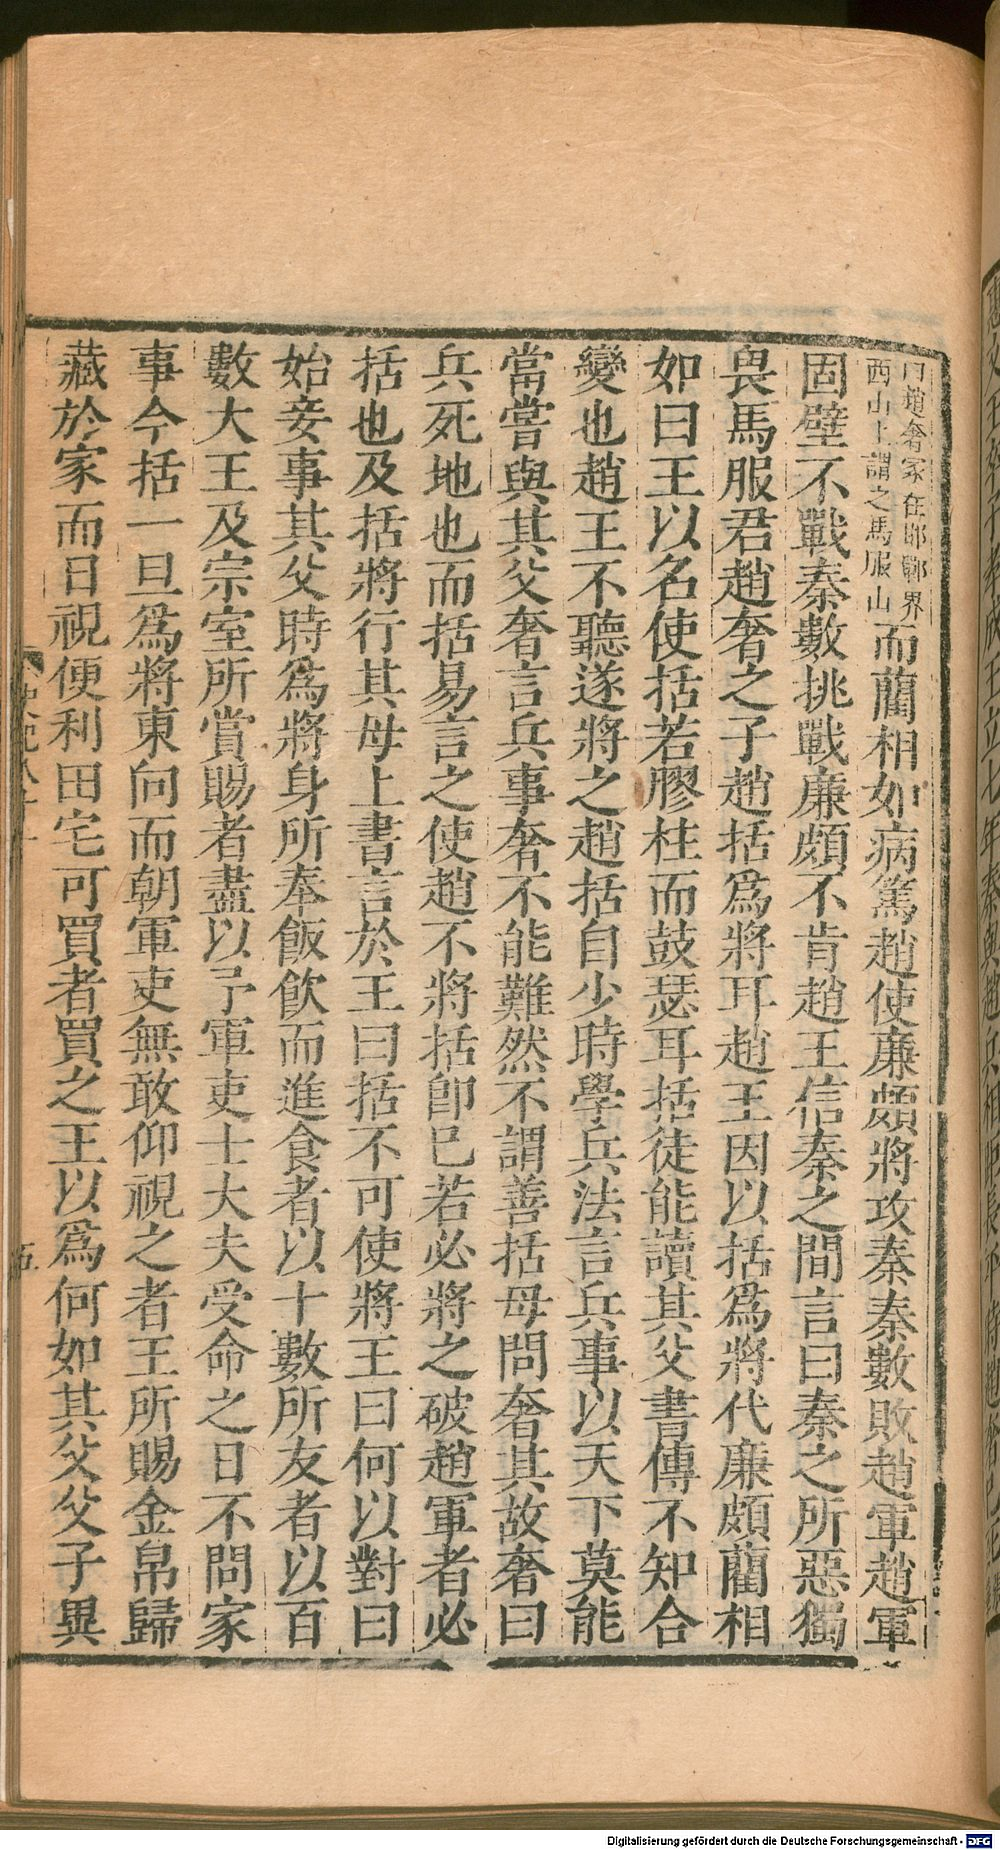 曰趙奢冢在邯鄲界
西山上謂之馬服山
而藺相如病篤趙使廉頗將攻秦秦數敗趙軍趙軍
固壁不戰秦數挑戰廉頗不肯趙王信秦之間言曰秦之所惡獨
畏馬服君趙奢之子趙括爲將耳趙王因以括爲將代廉頗藺相
如曰王以名使括若膠柱而鼓瑟耳括徒能讀其父書傳不知合
變也趙王不聽遂將之趙括自少時學兵法言兵事以天下莫能
當嘗與其父奢言兵事奢不能難然不謂善括母問奢其故奢曰
兵死地也而括易言之使趙不將括卽已若必將之破趙軍者必
括也及括將行其母上書言於王曰括不可使將王曰何以對曰
始妾事其父時爲將身所奉飯飲而進食者以十數所友者以百
數大王及宗室所賞賜者盡以予軍吏士大夫受命之日不問家
事今括一旦爲將東向而朝軍吏無敢仰視之者王所賜金帛歸
藏於家而日視便利田宅可買者買之王以爲何如其父父子異
Digitalisierung gefördert durch die Deutsche Forschungsgemeinschaft - DFG